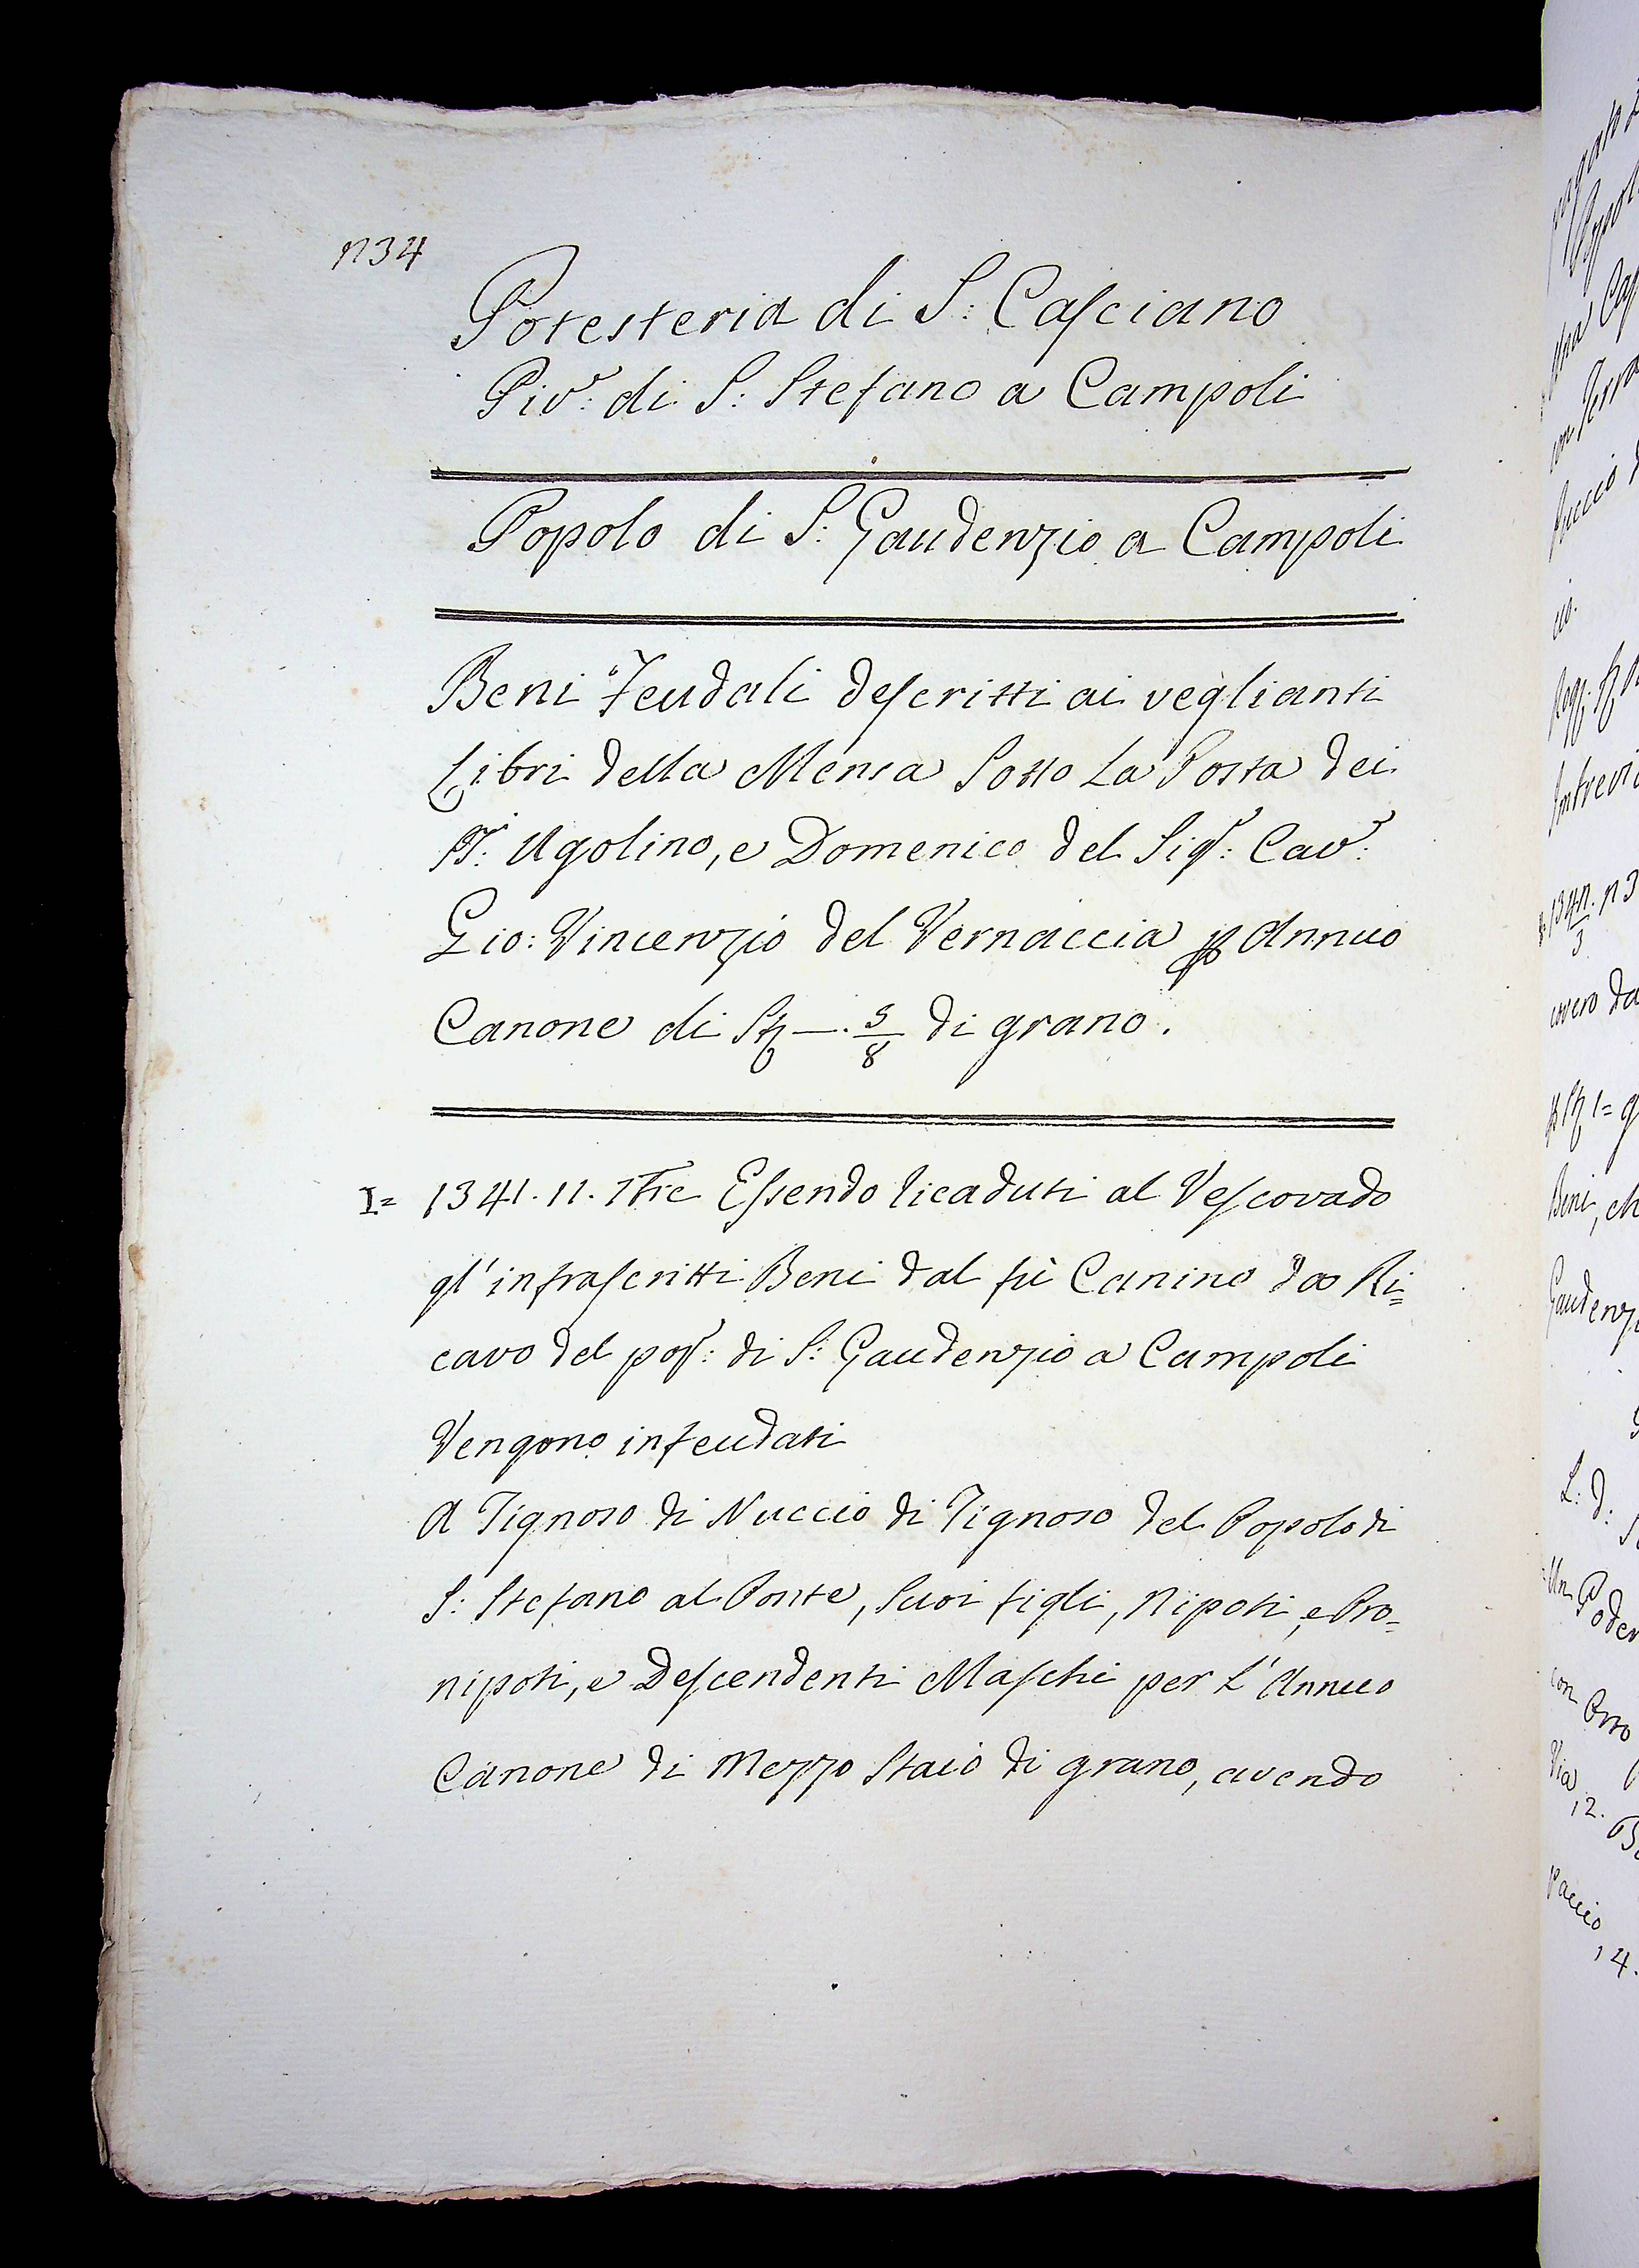 n34
Potesteria di S: Casciano
Piv.e: di S: Stefano a Campoli
Popolo di S: Gaudenzio a Campoli
Beni Feudali descritti ai veglianti
Libri della Mensa Sotto La Posta dei
Ugolino, e Domenico del Sigr: Cavr:
Gio: Vincenzio del Vernaccia p Annuo
Canone di di grano.
I= 1341. 11. Essendo ricaduti al Vescovado
gl'infrascritti Beni dal fù Canino da Ri=
cavo del pop: di S: Gaudenzio a Campoli
Vengono infeudati
A Tignoso di Nuccio di Tignoso del Popolo di
S: Stefano al Ponte, Suoi figli, Nipoti, e Pro-
nipoti, e Descendenti Maschi per L'Annuo
Canone di Mezzo Staio di grano, avendo